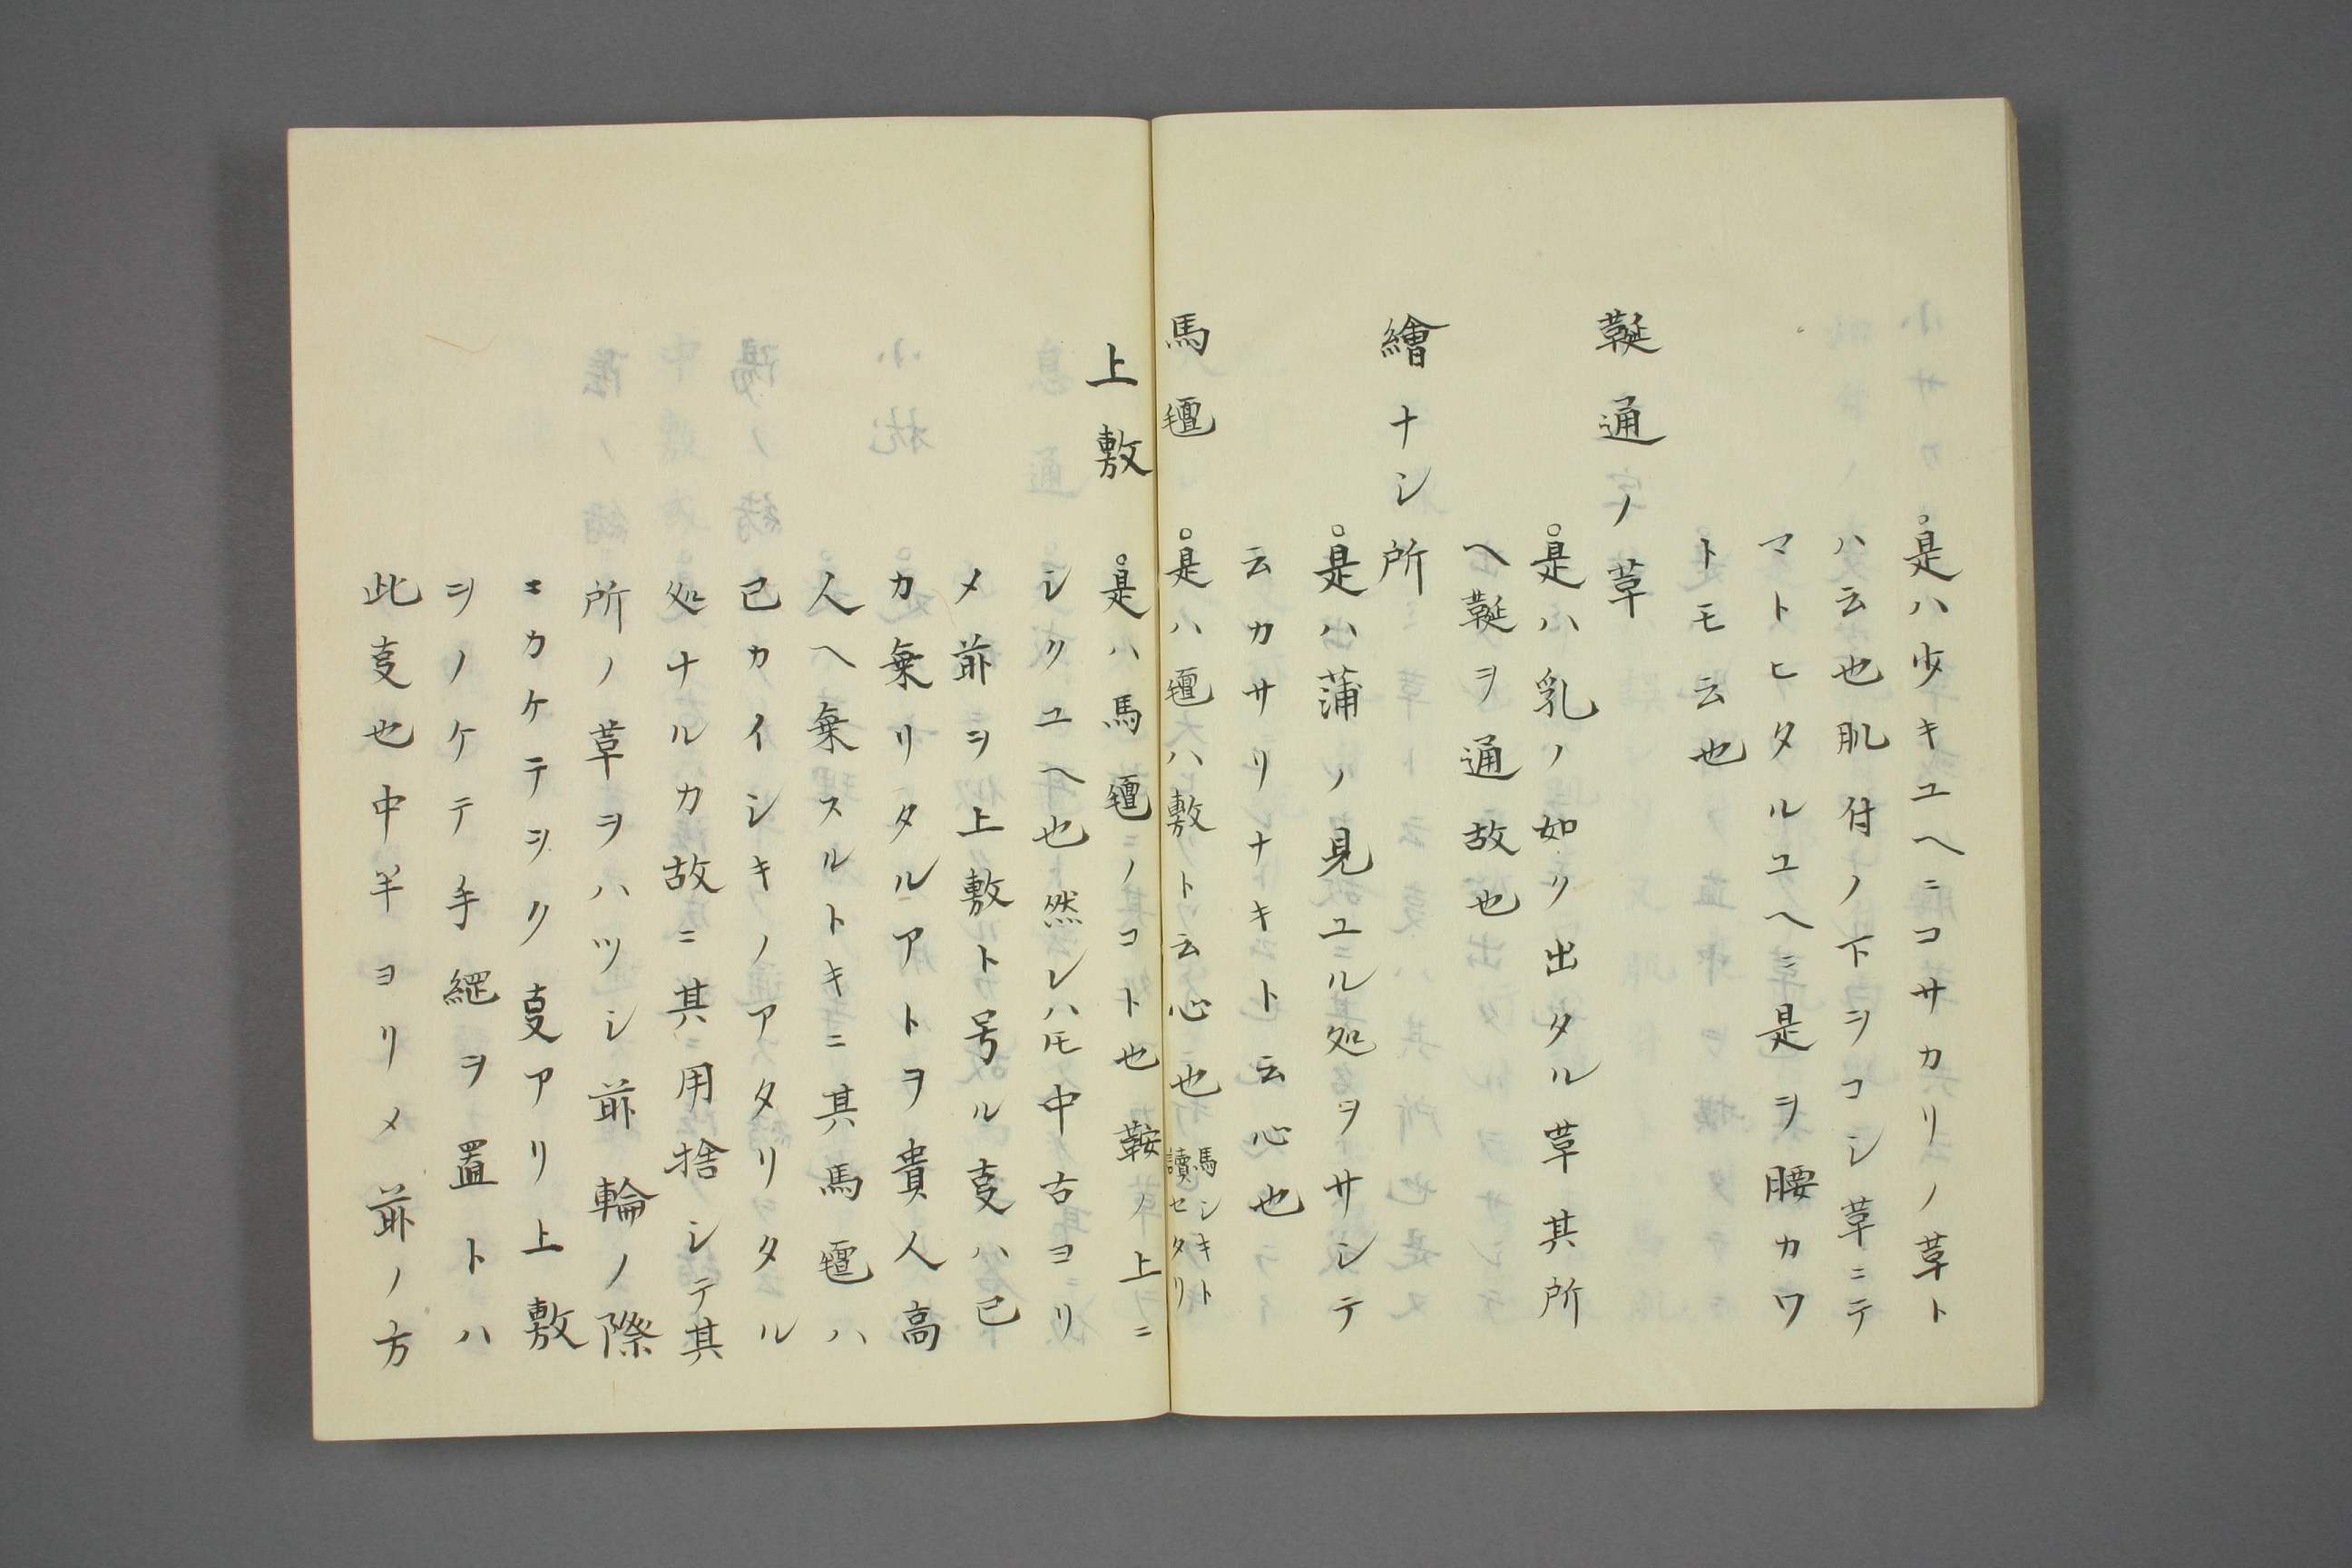 是ハ少キユヘニコサカリノ草ト
ハ云也肌付ノ下ヲコシ草ニテ
マトヒタルユヘニ是ヲ腰カワ
トモ云也
鞓通ノ草
是ハ乳ノ如ク出タル草其所
ヘ鞓ヲ通故也
繪ナシ所
是ハ蒲ノ見ユル処ヲサシテ
云カサリナキト云心也
馬氊
是ハ氊ハ敷ト云心也馬シキト讀セタリ
上敷
是ハ馬氊ノコト也鞍ノ上ニ
シクユヘ也然レハ𪜈中古ヨリ
メ前ヲ上敷ト号ル㕝ハ已
カ乗リタルアトヲ貴人高
人ヘ乗スルトキニ其馬氊ハ
已カイシキノアタリタル
処ナルカ故ニ其用捨シテ其
所ノ草ヲハツシ前輪ノ際
ニカケテヲク㕝アリ上敷
ヲノケテ手縄ヲ置トハ
此㕝也中半ヨリメ前ノ方